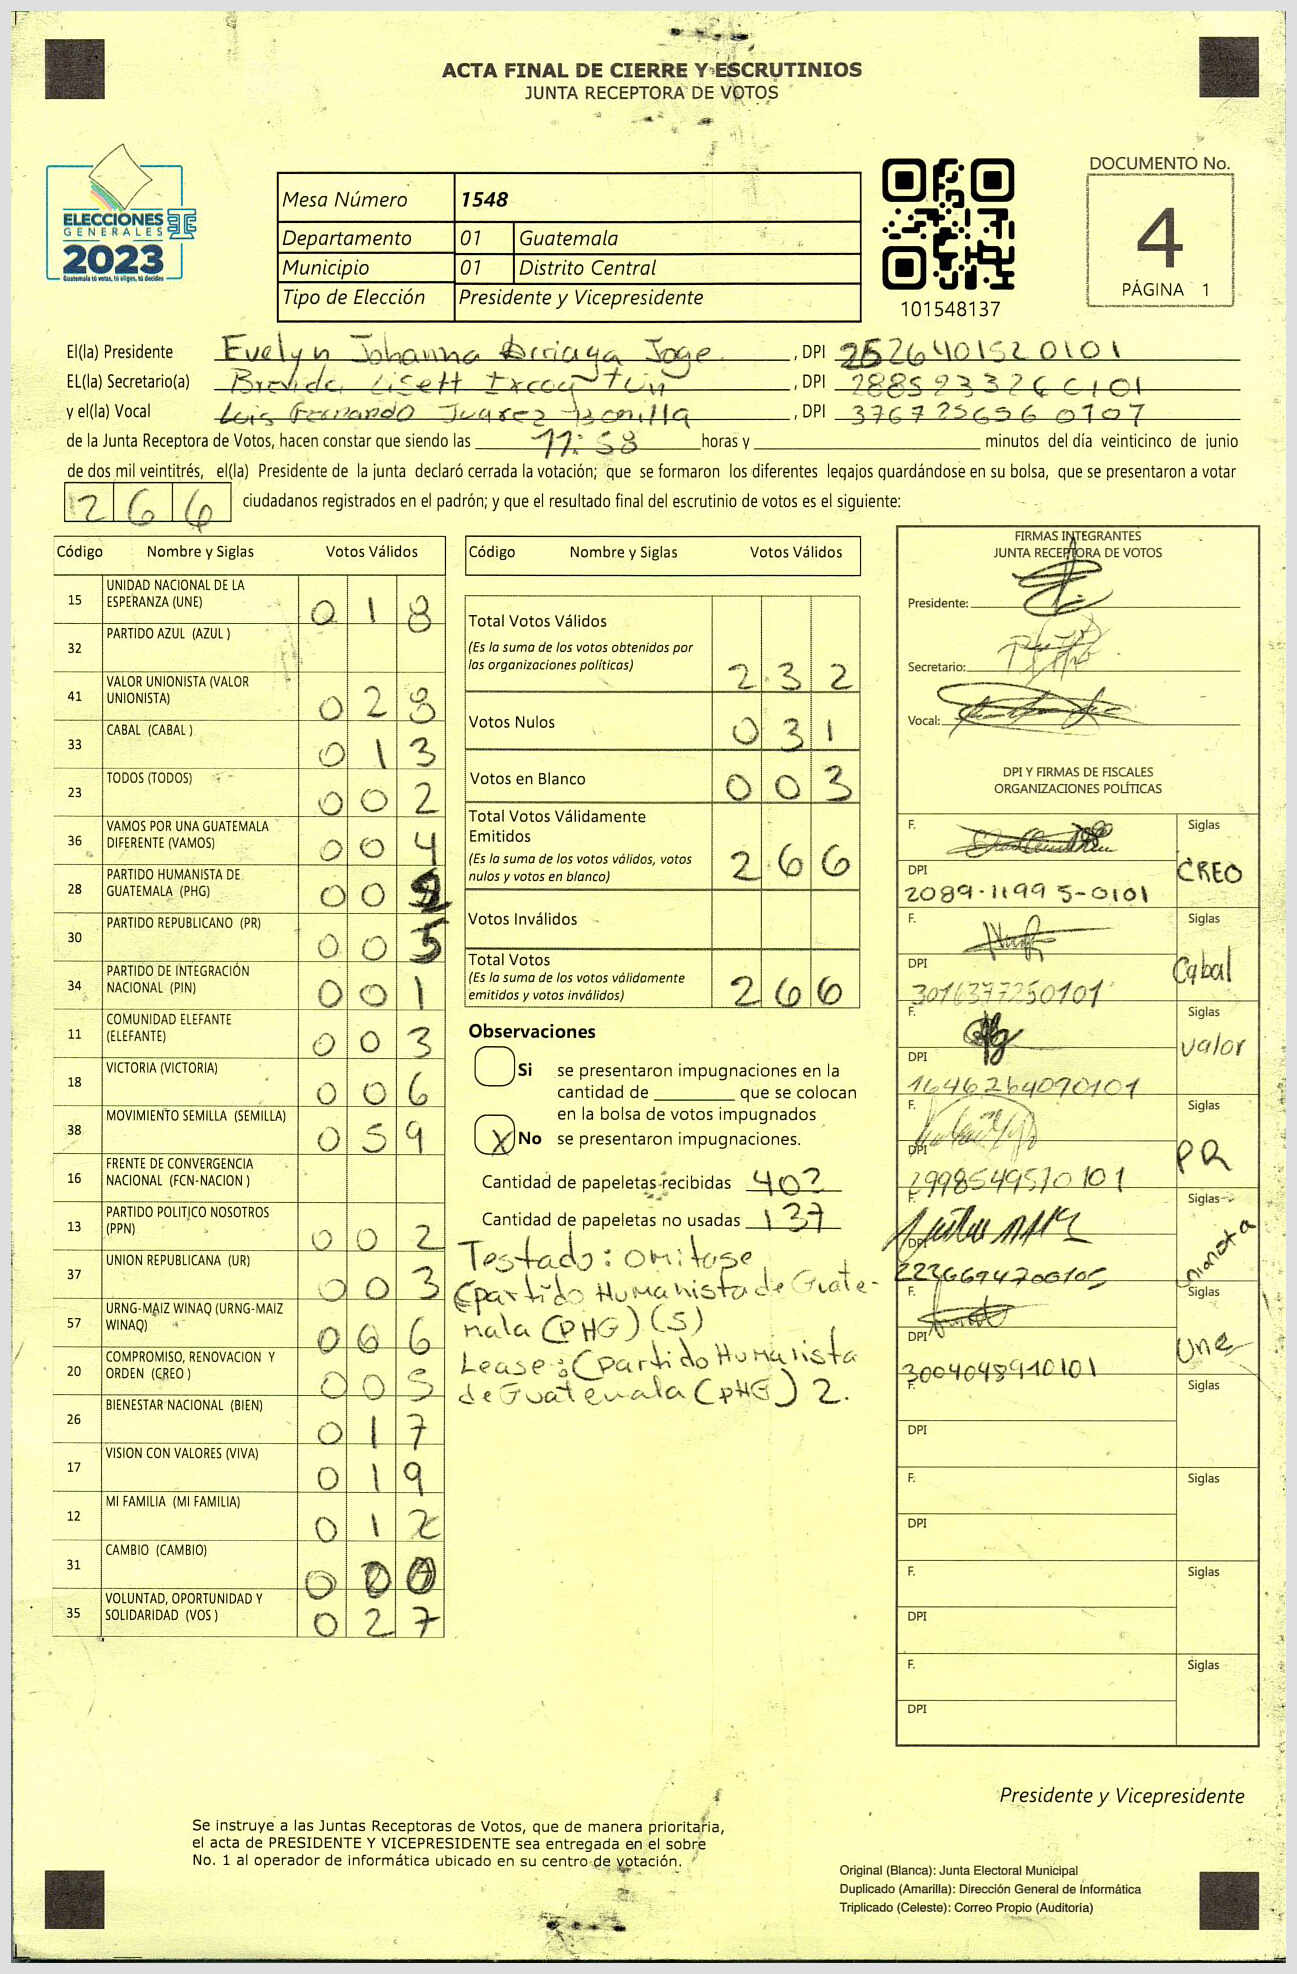 ACTA FINAL DE CIERRE Y ESCRUTINIOS
JUNTA RECEPTORA DE VOTOS
ELECCIONES
GENERALES
2023
Guatemala tú votas, tú eliges, tú decides
Mesa Número 1548
Departamento 01 Guatemala
Municipio 01 Distrito Central
Tipo de Elección Presidente y Vicepresidente
101548137
DOCUMENTO No.
4
PÁGINA 1
El(la) Presidente Evelyn Johanna Arriaga Joge , DPI 2526401520101
EL(la) Secretario(a) Brenda Lisett Ixcoy Tun , DPI
y el(la) Vocal Luis Fernando Juarez Bonilla , DPI 3767256560707
de la Junta Receptora de Votos, hacen constar que siendo las 17:58 horas y minutos del día veinticinco de junio
de dos mil veintitrés, el(la) Presidente de la junta declaró cerrada la votación; que se formaron los diferentes legajos guardándose en su bolsa, que se presentaron a votar
266 ciudadanos registrados en el padrón; y que el resultado final del escrutinio de votos es el siguiente:
Código Nombre y Siglas Votos Válidos
15 UNIDAD NACIONAL DE LA ESPERANZA (UNE) 018
32 PARTIDO AZUL (AZUL )
41 VALOR UNIONISTA (VALOR UNIONISTA) 028
33 CABAL (CABAL ) 013
23 TODOS (TODOS) 002
36 VAMOS POR UNA GUATEMALA DIFERENTE (VAMOS) 004
28 PARTIDO HUMANISTA DE GUATEMALA (PHG) 002
30 PARTIDO REPUBLICANO (PR) 005
34 PARTIDO DE INTEGRACIÓN NACIONAL (PIN) 001
11 COMUNIDAD ELEFANTE (ELEFANTE) 003
18 VICTORIA (VICTORIA) 006
38 MOVIMIENTO SEMILLA (SEMILLA) 059
16 FRENTE DE CONVERGENCIA NACIONAL (FCN-NACION )
13 PARTIDO POLITICO NOSOTROS (PPN) 002
37 UNION REPUBLICANA (UR) 003
57 URNG-MAIZ WINAQ (URNG-MAIZ WINAQ) 006
20 COMPROMISO, RENOVACION Y ORDEN (CREO ) 005
26 BIENESTAR NACIONAL (BIEN) 017
17 VISION CON VALORES (VIVA) 019
12 MI FAMILIA (MI FAMILIA) 012
31 CAMBIO (CAMBIO) 000
35 VOLUNTAD, OPORTUNIDAD Y SOLIDARIDAD (VOS ) 027
Código Nombre y Siglas Votos Válidos
Total Votos Válidos
(Es la suma de los votos obtenidos por
las organizaciones políticas) 232
Votos Nulos 031
Votos en Blanco 003
Total Votos Válidamente
Emitidos
(Es la suma de los votos válidos, votos
nulos y votos en blanco) 266
Votos Inválidos
Total Votos
(Es la suma de los votos válidamente
emitidos y votos inválidos) 266
Observaciones
Si se presentaron impugnaciones en la
cantidad de ________ que se colocan
en la bolsa de votos impugnados
X No se presentaron impugnaciones.
Cantidad de papeletas recibidas 403
Cantidad de papeletas no usadas 137
Testado: omitase
(partido Humanista de Guate-
mala (PHG) (5)
Lease: (partido Humanista
de Guatemala (PHG) 2.
FIRMAS INTEGRANTES
JUNTA RECEPTORA DE VOTOS
Presidente:
Secretario:
Vocal:
DPI Y FIRMAS DE FISCALES
ORGANIZACIONES POLÍTICAS
F. Siglas
DPI CREO
2089-11995-0101
F. Siglas
DPI Cabal
3016377250101
F. Siglas
DPI Valor
1646264090101
F. Siglas
DPI PR
2998549570101
F. Siglas
DPI unionista
F. Siglas
DPI Une
3004048910101
F. Siglas
DPI
F. Siglas
DPI
F. Siglas
DPI
F. Siglas
DPI
Presidente y Vicepresidente
Se instruye a las Juntas Receptoras de Votos, que de manera prioritaria,
el acta de PRESIDENTE Y VICEPRESIDENTE sea entregada en el sobre
No. 1 al operador de informática ubicado en su centro de votación.
Original (Blanca): Junta Electoral Municipal
Duplicado (Amarilla): Dirección General de Informática
Triplicado (Celeste): Correo Propio (Auditoria)